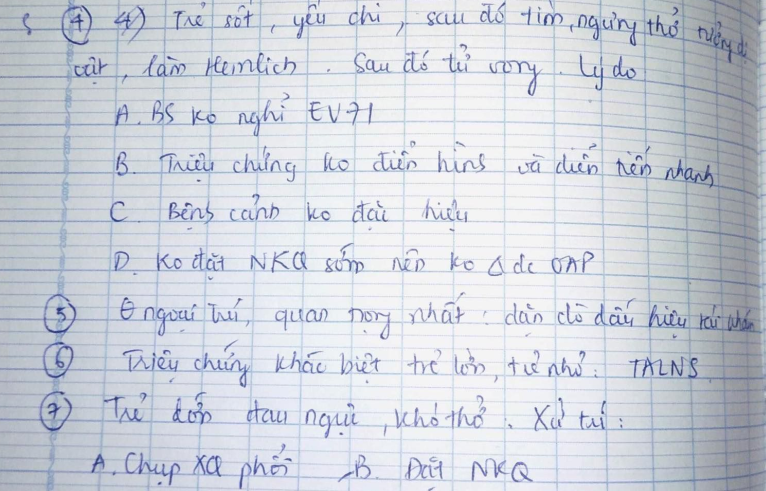 ④ 4) Trẻ sốt, yếu chi, sau đó tím, ngừng thở tưởng dị
vật, làm Hemlich. Sau đó tử vong. Lý do
A. BS ko nghĩ EV71
B. Triệu chứng ko điển hình và diễn tiến nhanh
C. Bệnh cảnh ko đặc hiệu
D. Ko đặt NKQ sớm nên ko Δ đc OAP
⑤ θ ngoại trú, quan trọng nhất: dặn dò dấu hiệu tái khám
⑥ Triệu chứng khác biệt trẻ lớn, trẻ nhỏ: TALNS
⑦ Trẻ đến đau ngực, khó thở. Xử trí:
A. Chụp XQ phổi B. Đặt NKQ